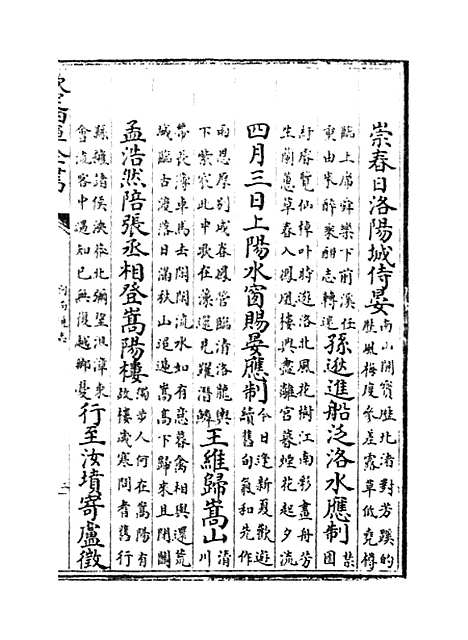 崇春日洛陽城侍晏南山開寶厯北渚對芳蹊的
厯風梅度參差露草低堯樽
臨上席舜樂下前溪任
重由來醉乘酣志轉迷孫逖進船泛洛水應制禁
囿
紆睿覽仙棹叶時遊洛北風花樹江南彩畫舟芳
生蘭蕙草春入鳳凰樓興盡離宮暮煙花起夕流
四月三日上陽水窗賜晏應制今日逢新夏歡遊
續舊旬氣和先作
雨恩厚别成春鳳管臨清洛龍輿
下紫宸此中歌在藻還見躍潛鱗王維歸嵩山清
川
帶長薄車馬去閒閒流水如有意暮禽相與還荒
城臨古渡落日滿秋山迢遞嵩高下歸來且閉關
孟浩然陪張丞相登嵩陽樓獨步人何在嵩陽有
故樓歲寒問耆舊行
縣擁諸侯泱莽北彌望沮漳東
會流客中遇知已無復越鄉憂行至汝墳寄盧徵
欽定四庫全書